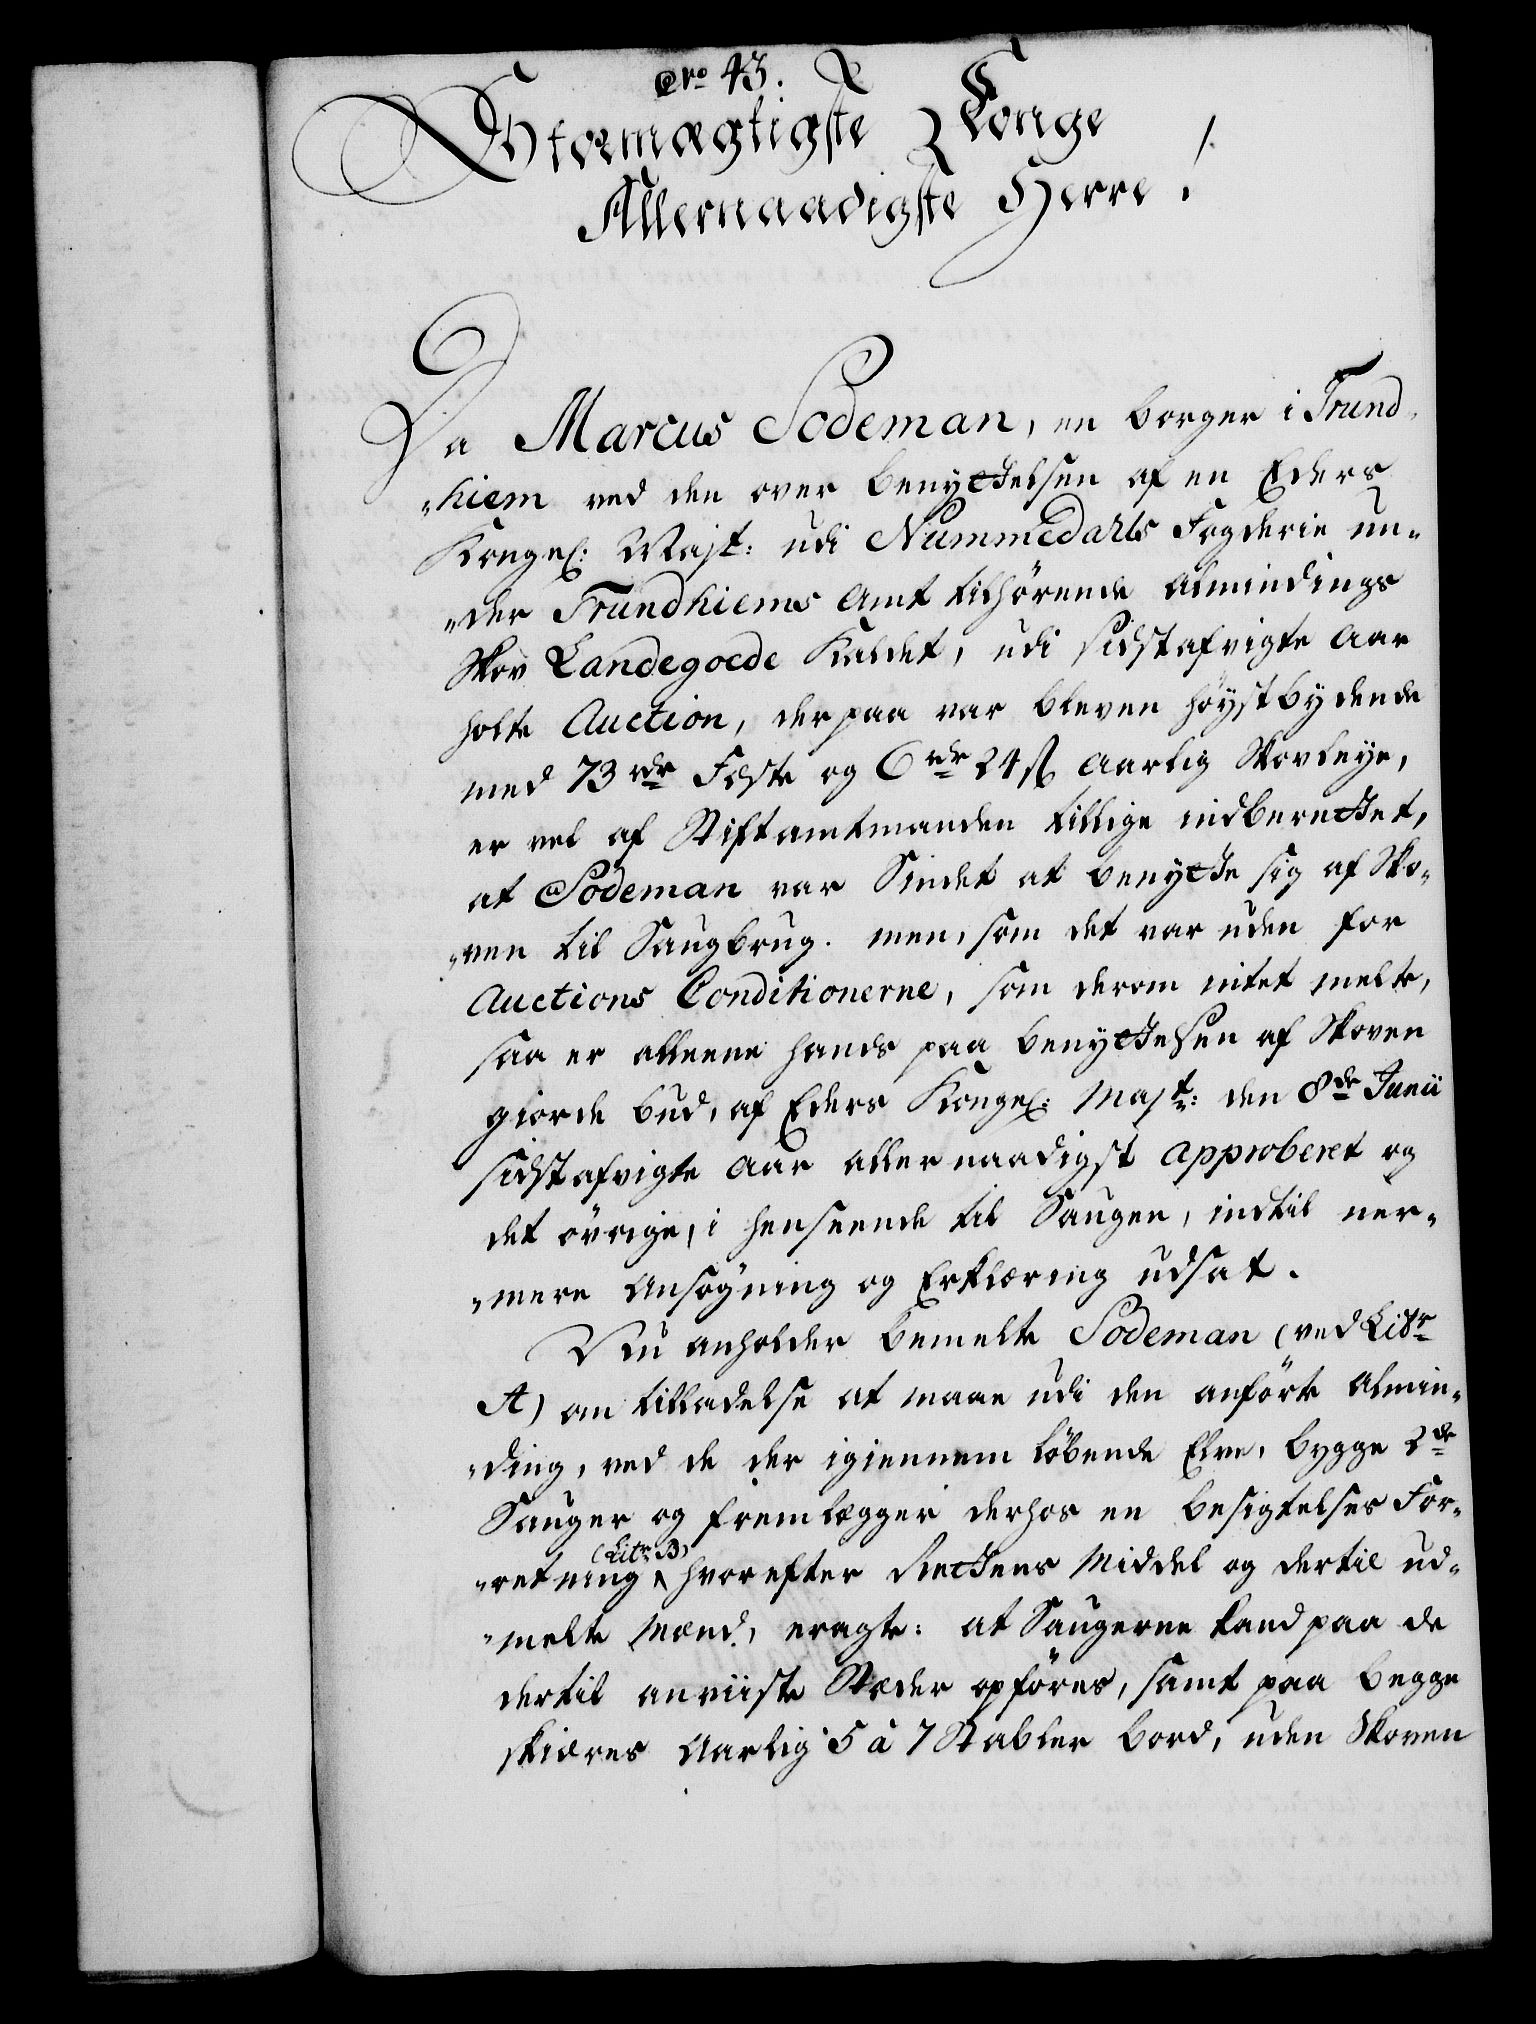 Nro 43.
Stormægtigste Konge
Allernaadigste Herre!
Da Marcus Sodeman, en borger i Trund-
"hiem ved den over benyttelsen af en Eders
Kongel: Majt: udi Nummedahls Fogderie un-
"der Trundhiems Amt tilhørende Almindings
Skov Landegoede kaldet, udi sidstafvigte Aar
holte Auction, derpaa var bleven høystbydende
med 73 rdr Feste og 6 rdr 24 ß Aarlig Skovleye,
er vel af Stiftamtmanden tillige indberettet,
at Sodeman var Sindet at benytte sig af Sko-
"ven til Saugbrug. men, som det var uden for
Auctions Conditionerne, som derom intet melte,
saa er alleene hands paa benyttelsen af Skoven
giorde bud, af Eders Kongel: Majt: den 8de Junii
sidstafvigte Aar allernaadigst approberet og
det øvrige, i henseende til Saugen, indtil ner-
"mere Ansøgning og Erklæring udsat.
Nu anholder bemelte Sodeman (ved Litr
A) om tilladelse at maae udi den anførte Almin-
"ding, ved de der igiennem løbende Elve, bygge 2de
Sauger og fremlægger derhos en besigtelses For-
"retning (Litr B) hvorefter Rettens Middel og dertil ud-
"melte Mænd, eragte: at Saugerne kand paa de
dertil anviiste Stæder opføres, samt paa begge
skiæres Aarlig 5 à 7 Stabler bord, uden Skoven